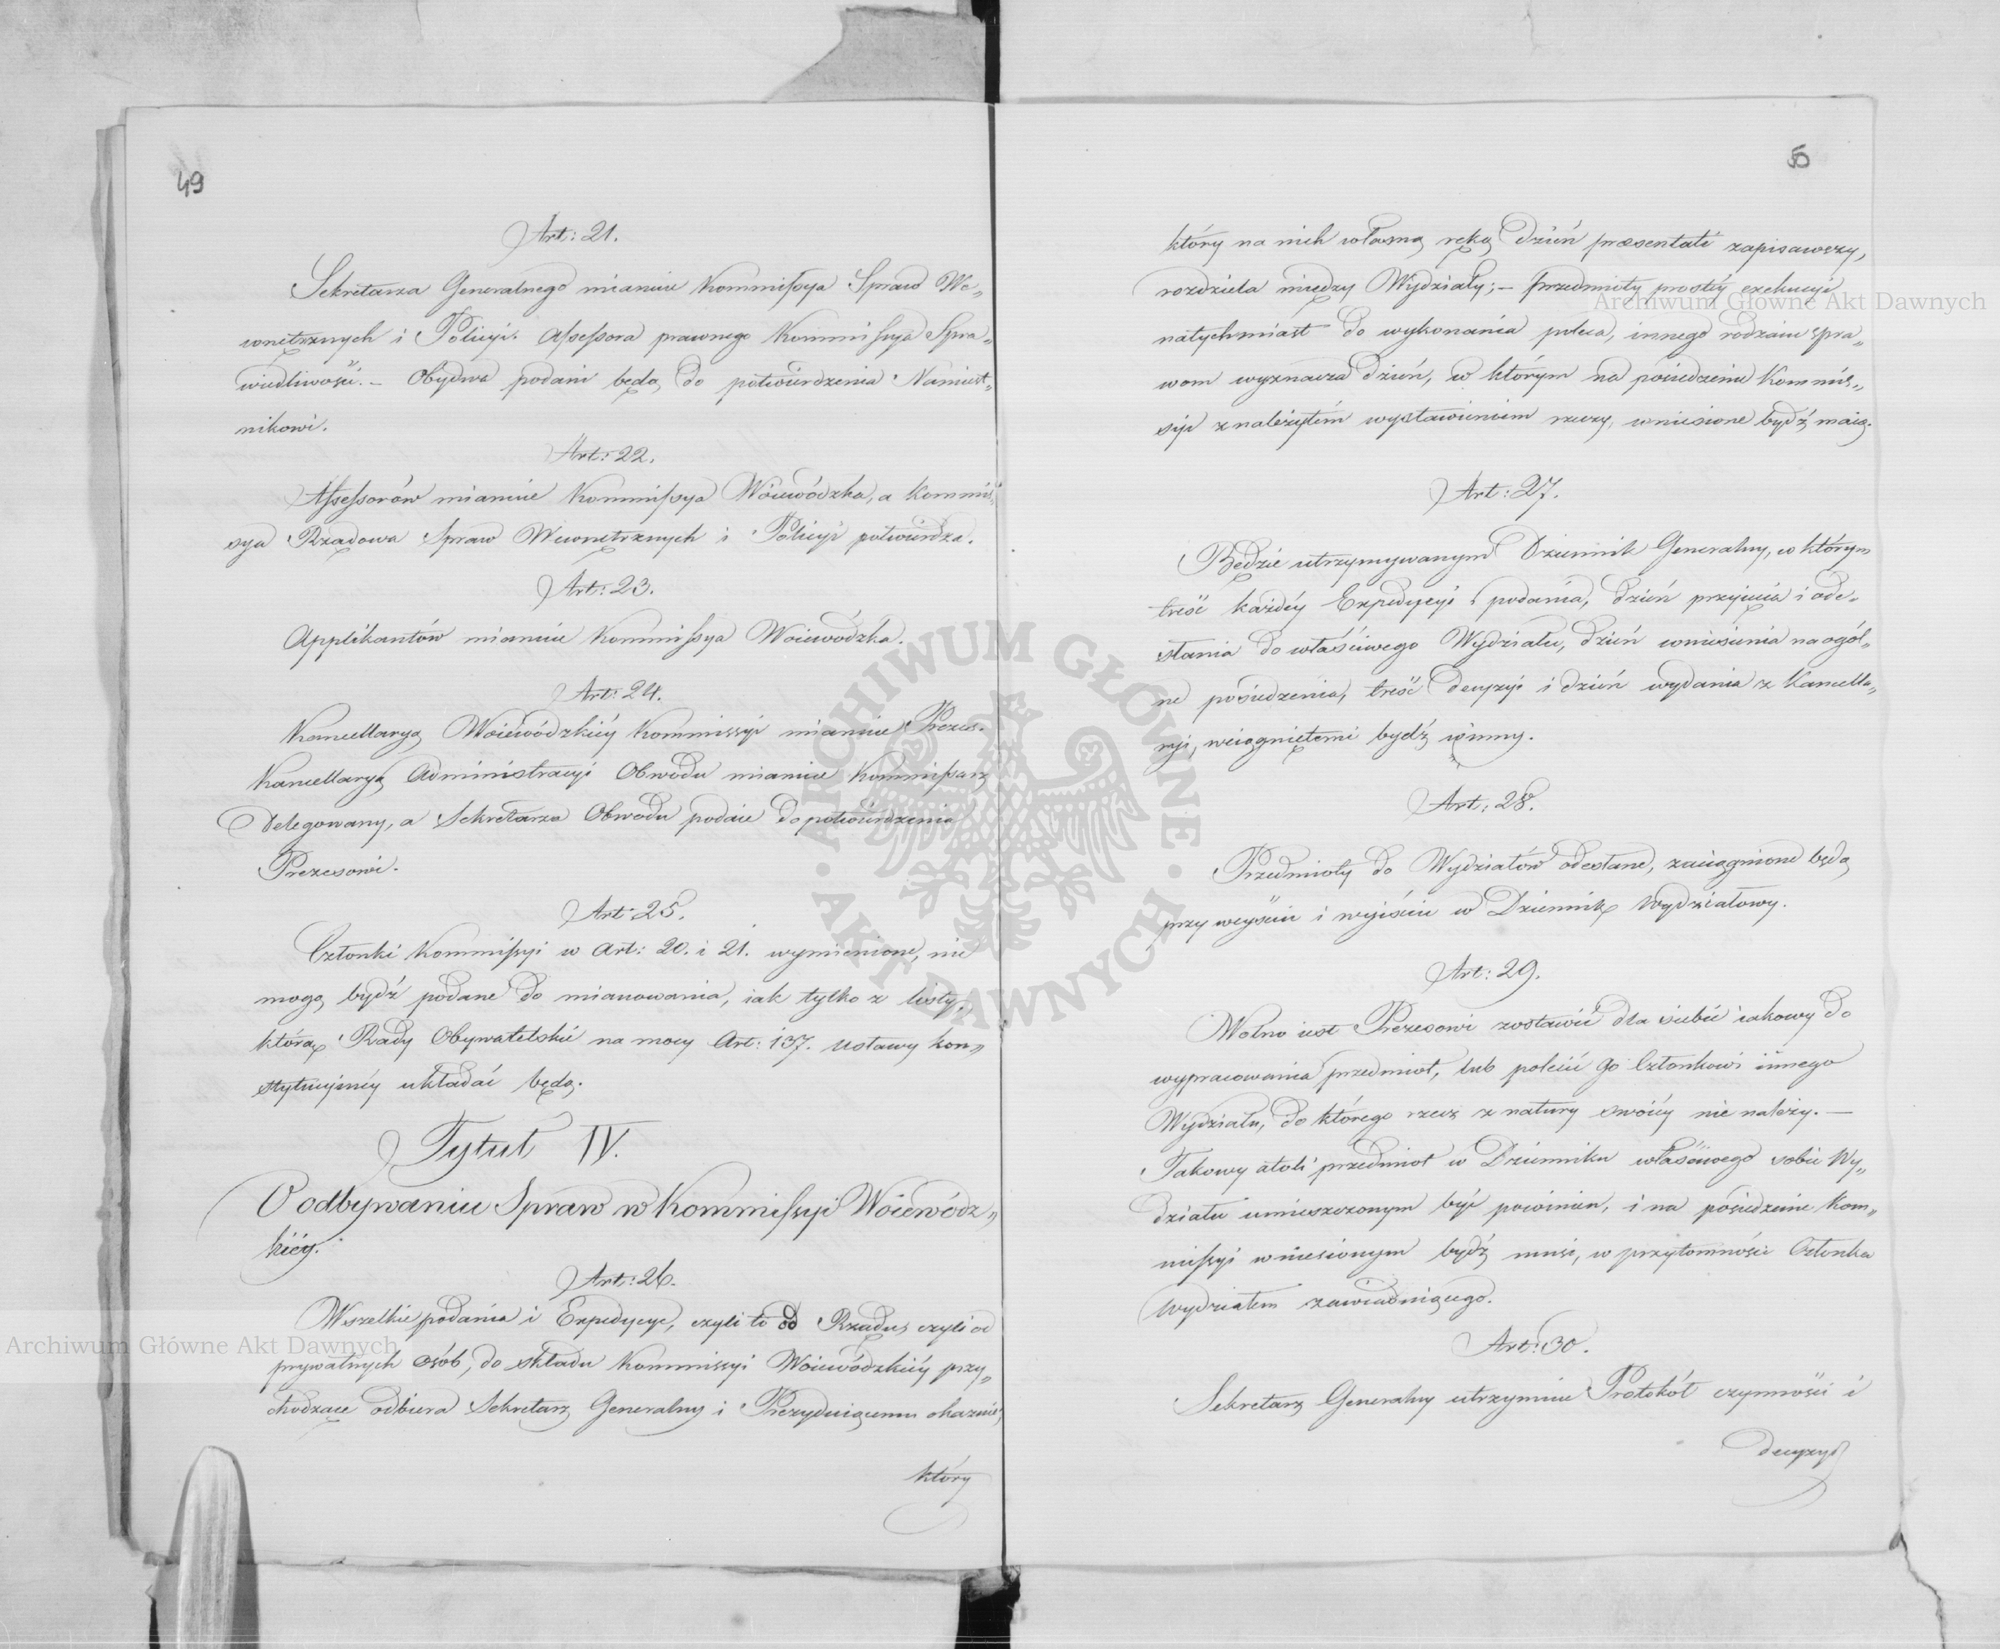 49
Art: 21.
Sekretarza Generalnego mianuie Kommissya Spraw We„
wnętrznych i Policyi. Assessora prawnego Kommissya Spra„
wiedliwości. – Obydwa podani będą do potwierdzenia Namiest„
nikowi.
Art: 22.
Assessorów mianuie Kommissya Woiewódzka, a Kommis„
sya Rządowa Spraw Wewnętrznych i Policyi potwierdza.
Art: 23.
Applikantów mianuie Kommissya Woiewódzka.
Art: 24.
Kancellaryą Woiewódzkiéy Kommissyi mianuie Prezes.
Kancellaryą Administracyi Obwodu mianuie Kommissarz
Delegowany, a Sekretarza Obwodu podaie do potwierdzenia
Prezesowi.
Art: 25.
Członki Kommissyi w Art: 20. i 21. wymienione, nie
mogą bydź podane do mianowania, iak tylko z listy,
którą Rady Obywatelskie na mocy Art: 137. Ustawy kon„
stytucyinéy układać będą.
Tytuł IV.
O odbywaniu Spraw w Kommissyi Woiewódz„
kiéy.
Art: 26.
Wszelkie podania i Expedycye, czyli to od Rządu, czyli od
prywatnych osób, do składu Kommissyi Woiewódzkiéy przy„
chodzące odbiera Sekretarz Generalny i Prezyduiącemu okazuie,
który
50
który na nich własną ręką dzień præsentati zapisawszy,
rozdziela między Wydziały; – przedmioty prostéy exekucyi
natychmiast do wykonania poleca, innego rodzaiu spra„
wom wyznacza dzień, w którym na posiedzeniu Kommis„
syi z należytém wystawieniem rzeczy, wniesione bydź maią.
Art: 27.
Będzie utrzymywanym Dziennik Generalny, w którym
treść każdéy Expedycyi i podania, dzień przyięcia i ode„
słania do właściwego Wydziału, dzień wniesienia na ogól„
ne posiedzenia, treść decyzyi i dzień wydania z Kancella„
ryi, wciągniętemi bydź winny.
Art: 28.
Przedmioty do Wydziałów odesłane, zaciągnione będą
przy weyściu i wyiściu w Dziennik Wydziałowy.
Art: 29.
Wolno iest Prezesowi zostawić dla siebie iakowy do
wypracowania przedmiot, lub polecić go Członkowi innego
Wydziału, do którego rzecz z natury swoiéy nie należy. —
Takowy atoli przedmiot w Dzienniku właściwego sobie Wy„
działu umieszczonym być powinien, i na posiedzenie Kom„
missyi wniesionym bydź musi, w przytomności Członka
Wydziałem zawiaduiącego.
Art: 30.
Sekretarz Generalny utrzymuie Protokół czynności i
decyzyi
Archiwum Główne Akt Dawnych
Archiwum Główne Akt Dawnych
ARCHIWUM GŁÓWNE · AKT DAWNYCH ·